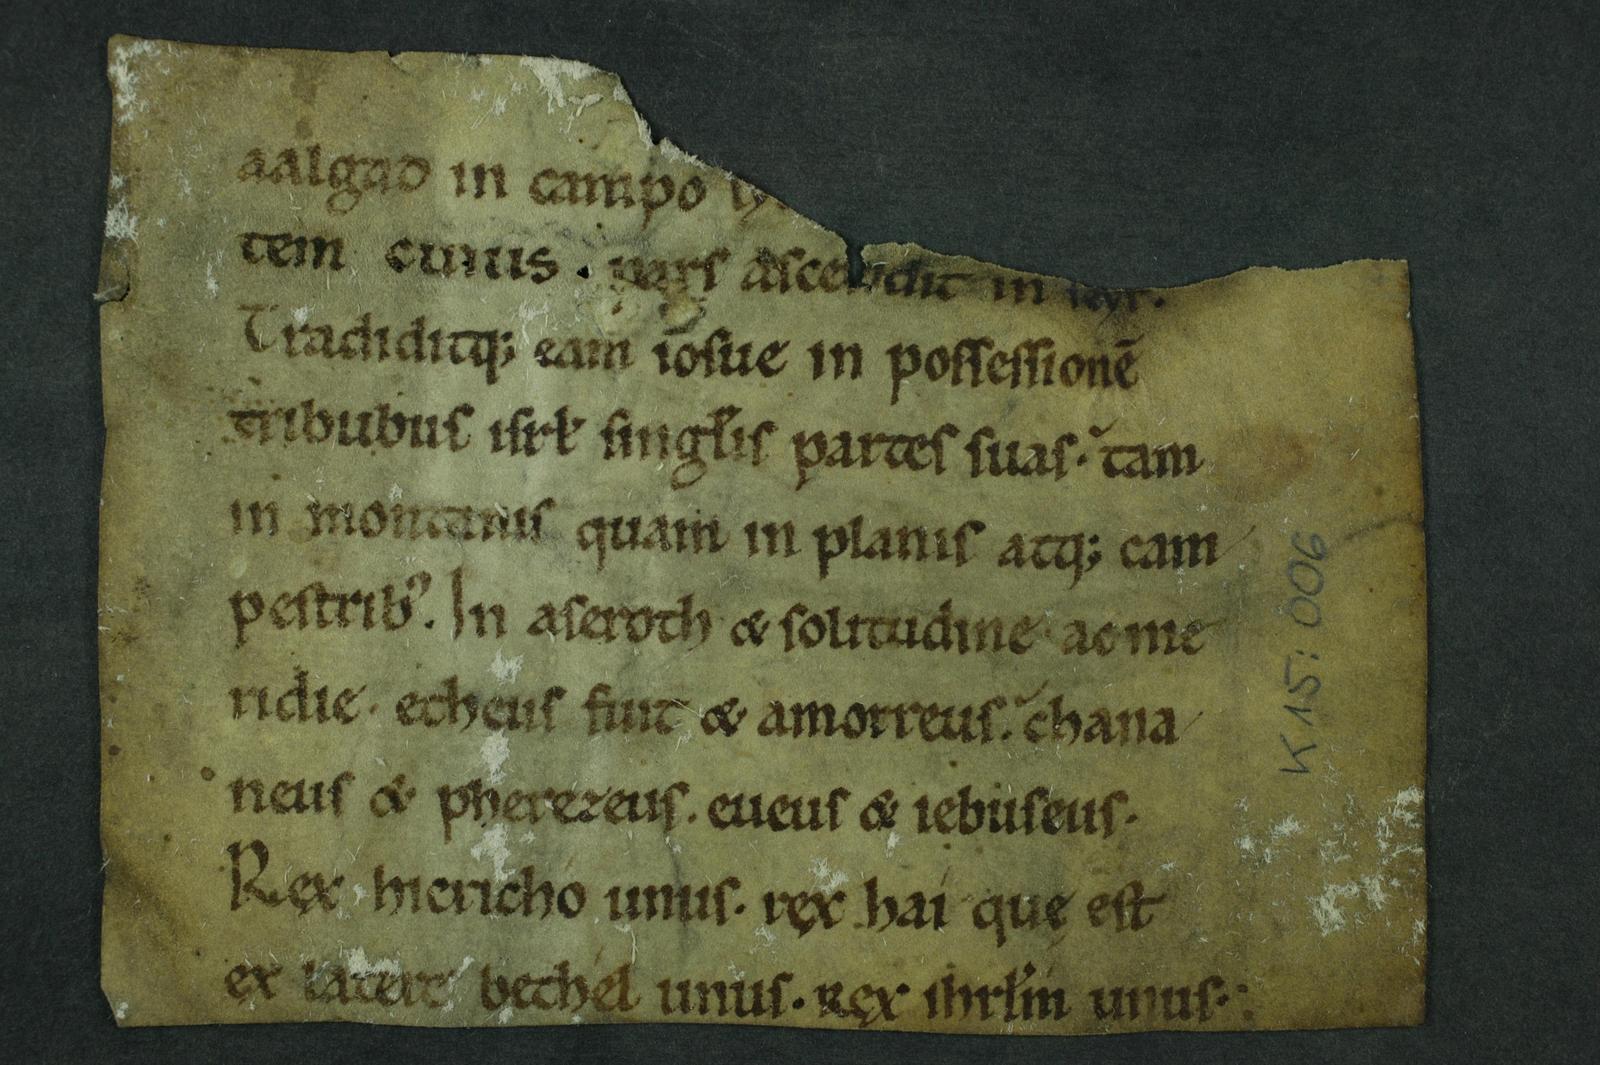 aalgad in campo
tem cuius. pars ascendit in seyr.
Tradiditq; eam iosue in possessionē
tribubus isrl' singl'is partes suas. tam
in montanis quam in planis atq; cam
pestrib'. In aseroth & solitudine ac me
ridie. etheus fuit & amorreus. chana
neus & pherezeus. eueus & iebuseus.
Rex hiericho unus. rex hai que est
ex latere bethel unus. Rex ihrl'm unus.
K15:006